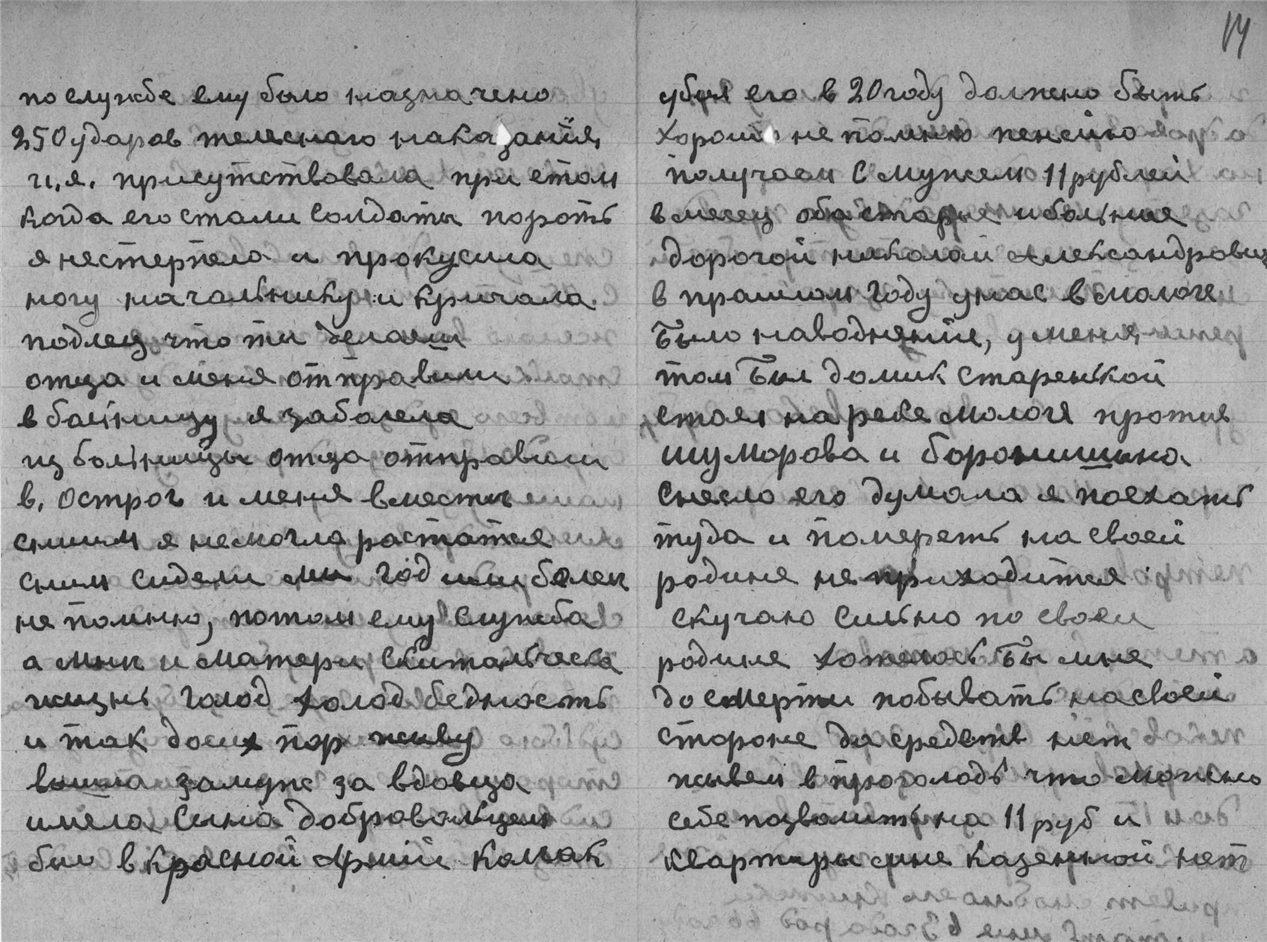 по службе ему было назначено
250 ударов телеснаго наказания,
и.я. присутствовала при етом
когда его стали солдаты пороть
я нестерпела и прокусила
ногу начальнику и кричала
подлец что ти делаеш
отца и меня отправили
в болницу я заболела
из болницы отца отправили
в. острог и меня вместы
сним я немогла растатся
сним сидели ми год или болеи
не помню, потом ему служба
а мни и матери скитальческа
жизнь голод холод бедность
и так досих пор живу
вышла замуж за вдовца
имела сына добровальцем
был в красной Армии Колчак
14
убил его в 20 году должно быть
хорошо не помню пенсию я
получаем с мужем 11 рублей
в месец оба старые и больные
дорогой николай Александрович
в прашлом году у нас в мологе
было наводнение, у меня,
там был домик старенькой
стоял на реке мологе против
шуморова и боронишино
снесло его думала я поехать
туда и помереть на своей
родине не приходится
скучаю сильно по своей
родине хотелось бы мне
до смерти побывать на своей
стороне да средств нет
живем в проголодь что можно
себе позволить на 11 руб и
квартиры мне казенной нет